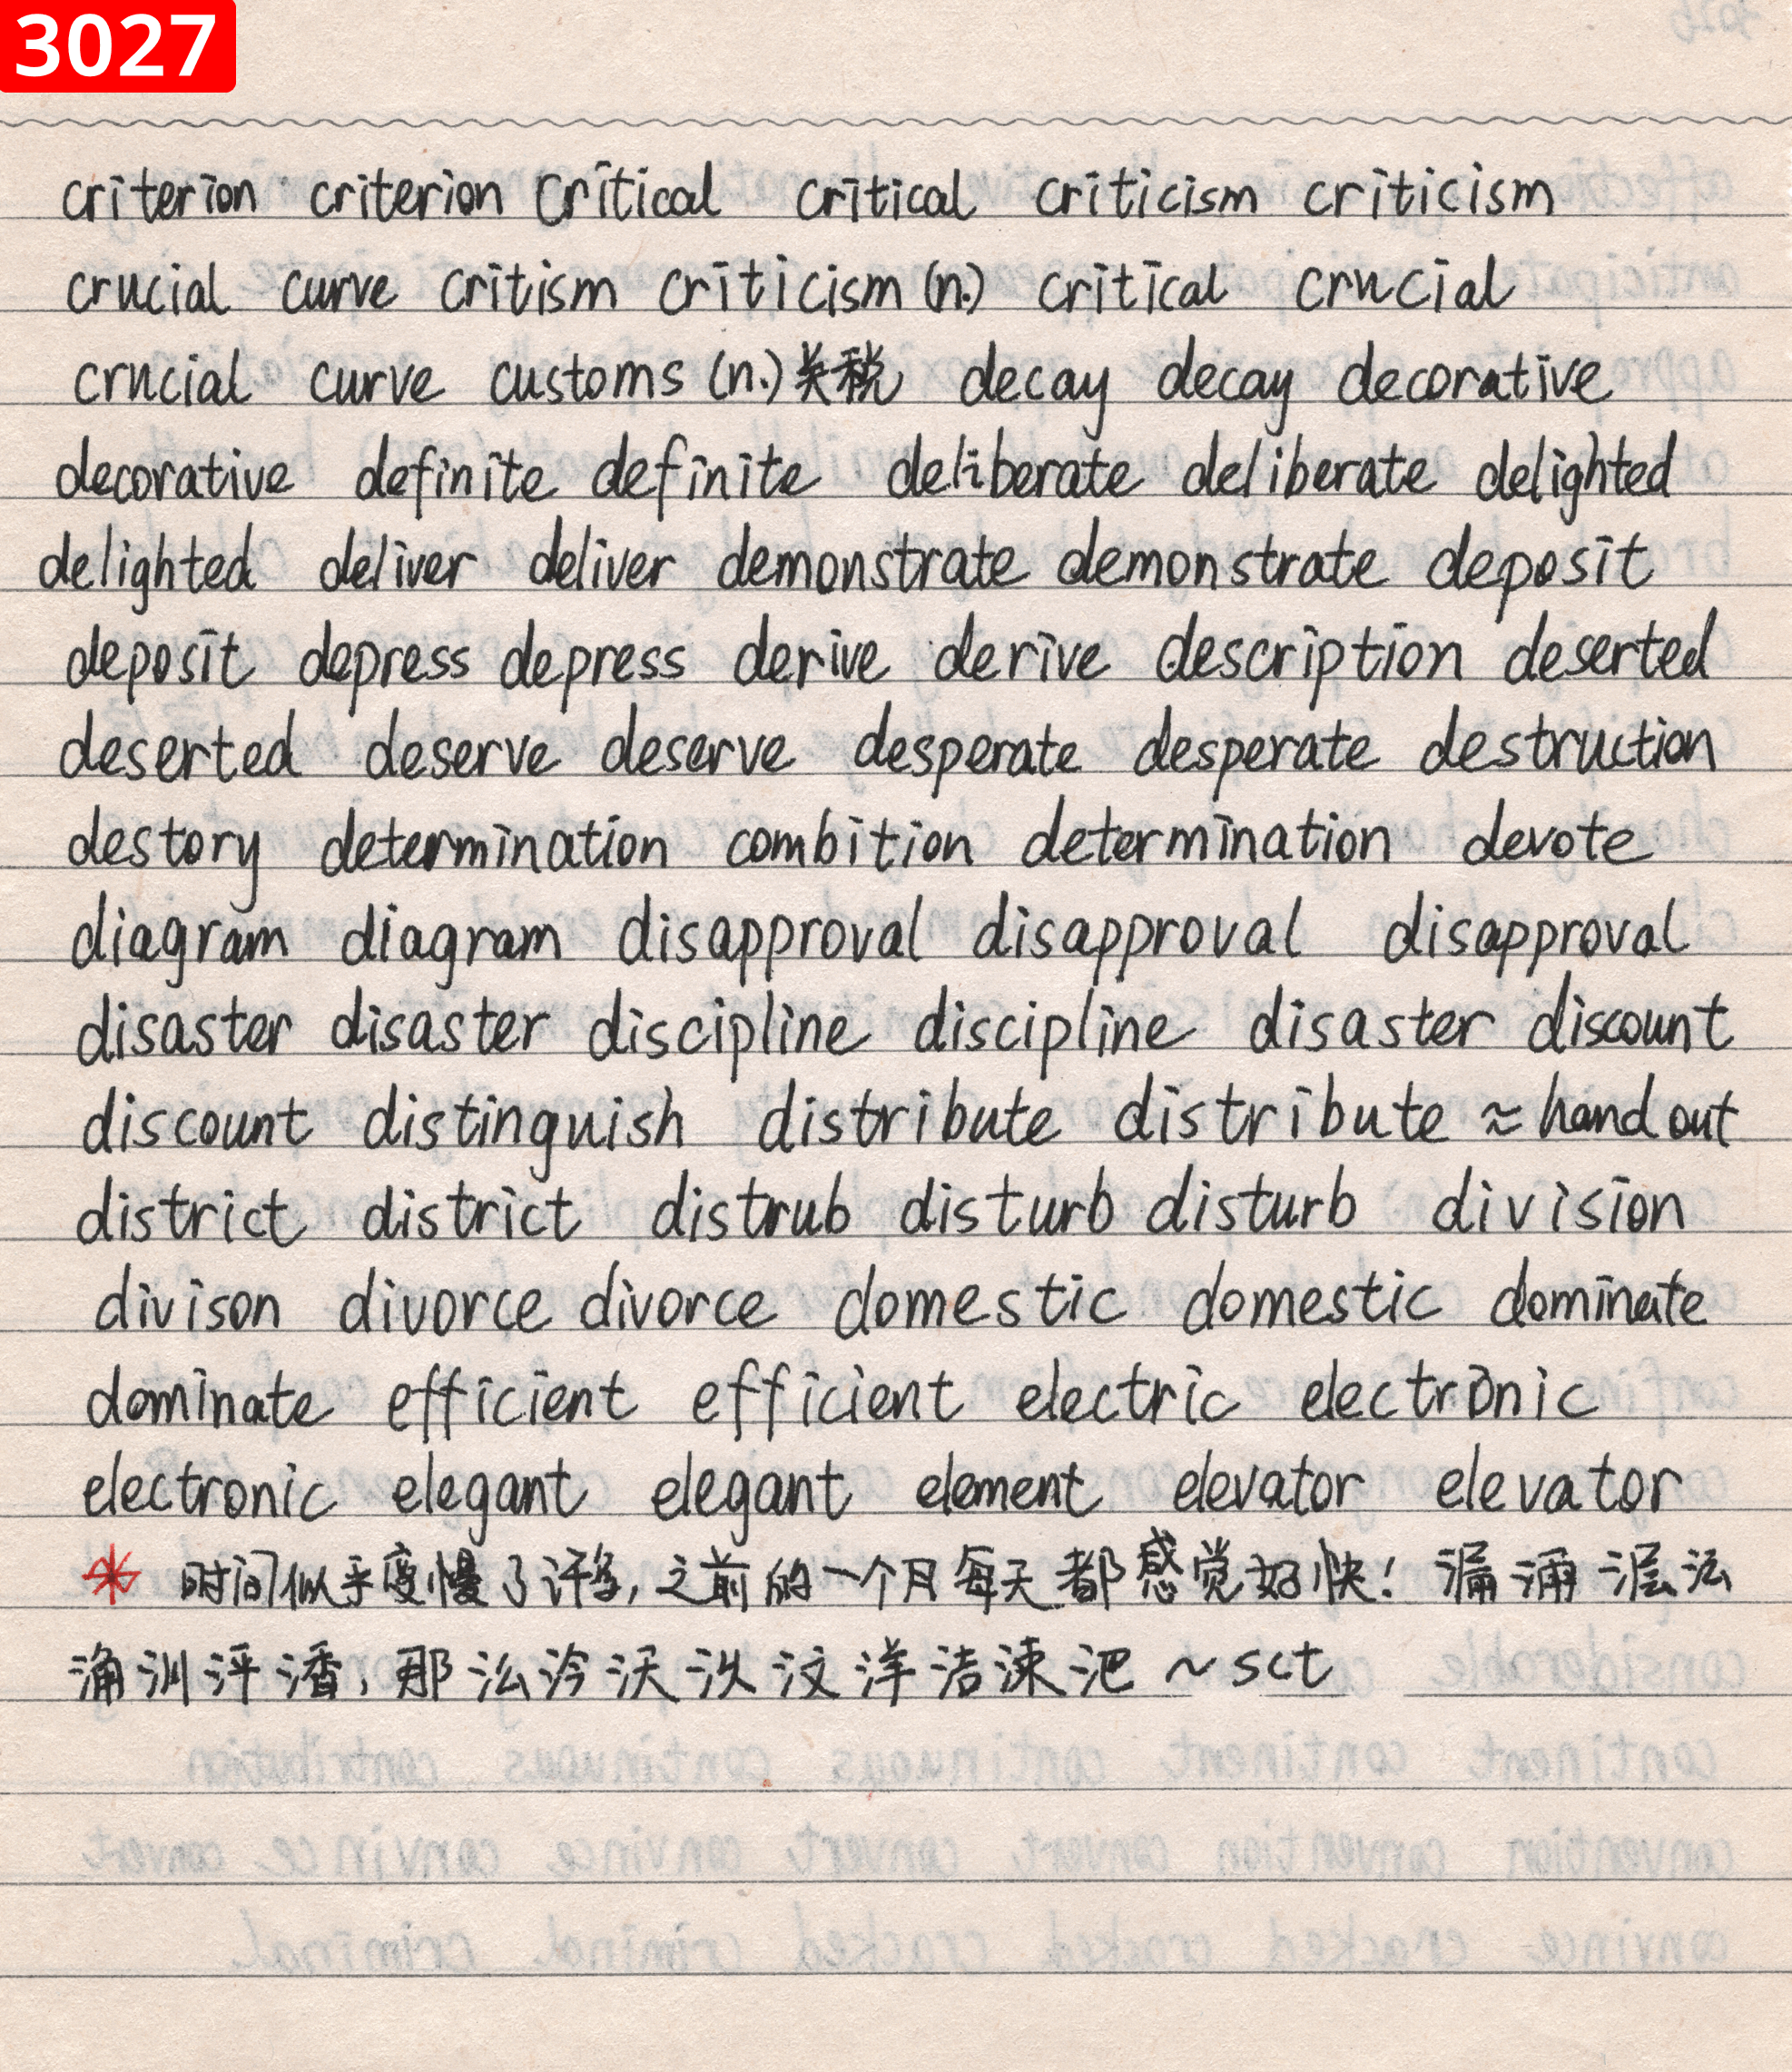 3027
criterion criterion critical critical criticism criticism
crucial curve critism criticism (n.) critical crucial
crucial curve customs (n.) 关税 decay decay decorative
decorative definite definite deliberate deliberate delighted
delighted deliver deliver demonstrate demonstrate deposit
deposit depress depress derive derive description deserted
deserted deserve deserve desperate desperate destruction
destory determination combition determination devote
diagram diagram disapproval disapproval disapproval
disaster disaster discipline discipline disaster discount
discount distinguish distribute distribute ≈ hand out
district district distrub disturb disturb division
divison divorce divorce domestic domestic dominate
dominate efficient efficient electric electronic
electronic elegant elegant element elevator elevator
* 时间似乎变慢了许多, 之前的一个月每天都感觉好快!
那 洋洁涑 ~ sct